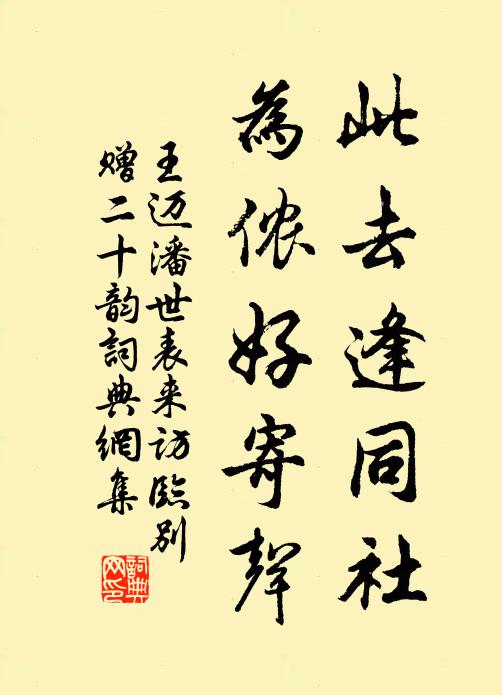 此去逢同社
為侬好寄聲
王迈潘世表来访臨别
赠二十韵詞典網集
詞典
网印